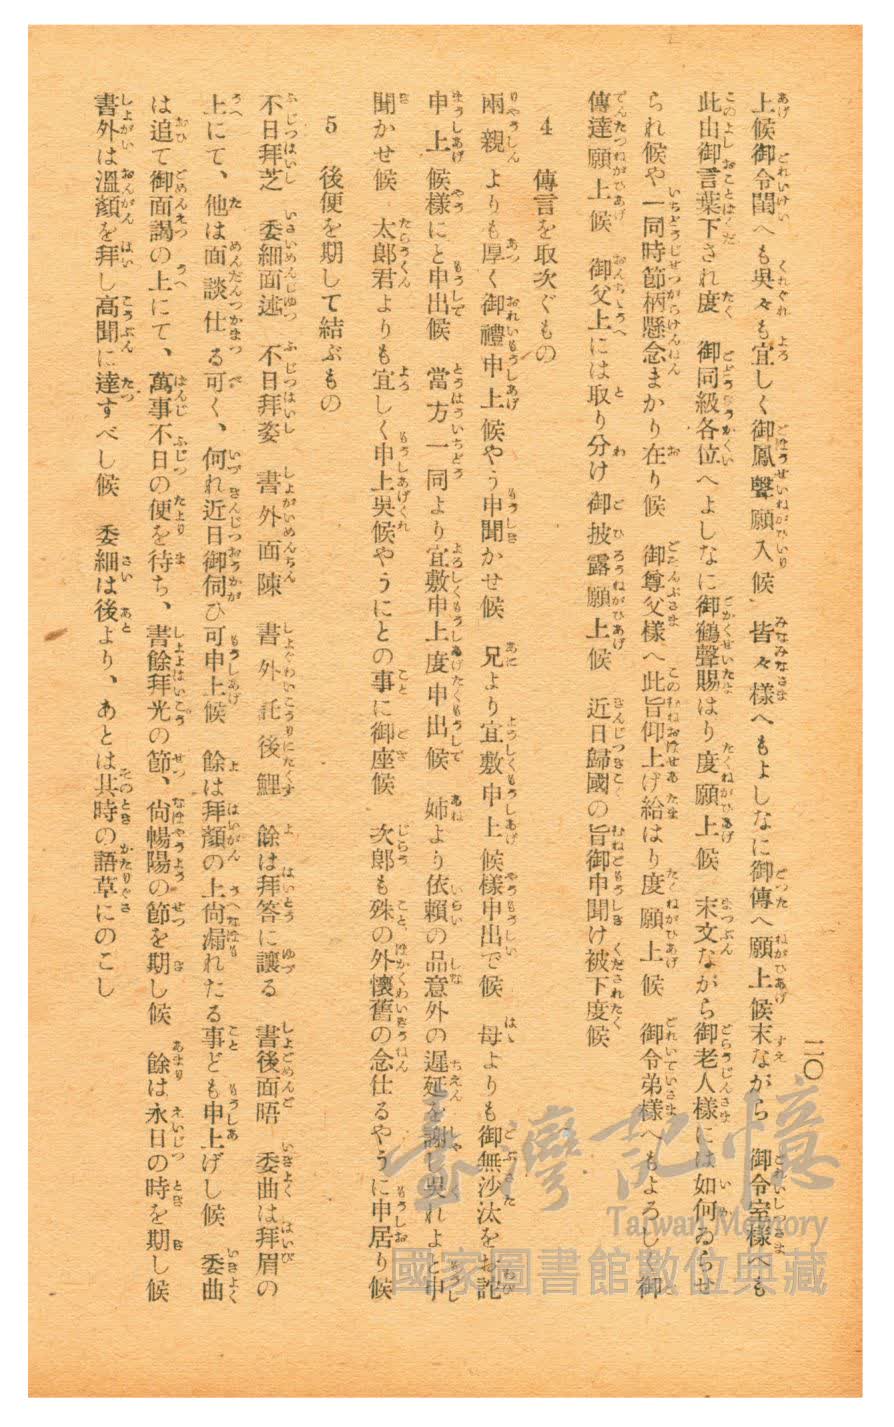 二〇
上候御令閨へも呉々も宜しく御鳳聲願入候 皆々樣へもよしなに御傳へ願上候末ながら 御令室樣へも
此由御言葉下され度 御同級各位へよしなに御鶴聲賜はり度願上候 末文ながら御老人樣には如何ゐらせ
られ候や一同時節柄懸念まかり在り候 御尊父樣へ此旨仰上げ給はり度願上候 御令弟樣へもよろしく御
傳達願上候 御父上には取り分け御披露願上候 近日歸國の旨御申聞け被下度候
4 傳言を取次ぐもの
兩親よりも厚く御禮申上候やう申聞かせ候 兄より宜敷申上候樣申出で候 母よりも御無沙汰をお詫
申上候樣にと申出候 當方一同より宜敷申上度申出候 姉よう依頼の品意外の遲延を謝し呉れよと申
聞かせ候 太郎君よりも宜しく申上呉候やうにとの事に御座候 次郎も殊の外懷舊の念仕るやうに申居り候
5 後便を期して結ぶもの
不日拜芝 委細面述 不日拜姿 書外面陳 書外託後鯉 餘は拜答に讓る 書後面晤 委曲は拜眉の
上にて、他は面談仕る可く、何れ近日御伺ひ可申上候 餘は拜顏の上尙漏れたる事ども申上げし候 委曲
は追て御面謁の上にて、萬事不日の便を待ち、書餘拜光の節、尙暢陽の節を期し候 餘は永日の時を期し候
書外は溫顏を拜し高聞に達すべし候 委細は後より、あとは其時の語草にのこし
臺灣記憶
Taiwan Memory
國家圖書館數位典藏